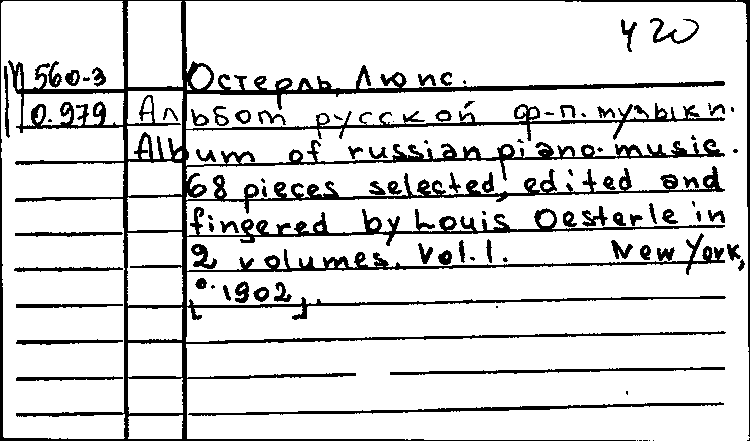 420
М 560-3
0.979
Остерль, Люис.
Альбом русской ф-п. музыки.
Album of russian piano. music.
68 pieces selected, edited and
fingered by Louis Oesterle in
2 volumes. Vol. 1. New York,
[c. 1902].